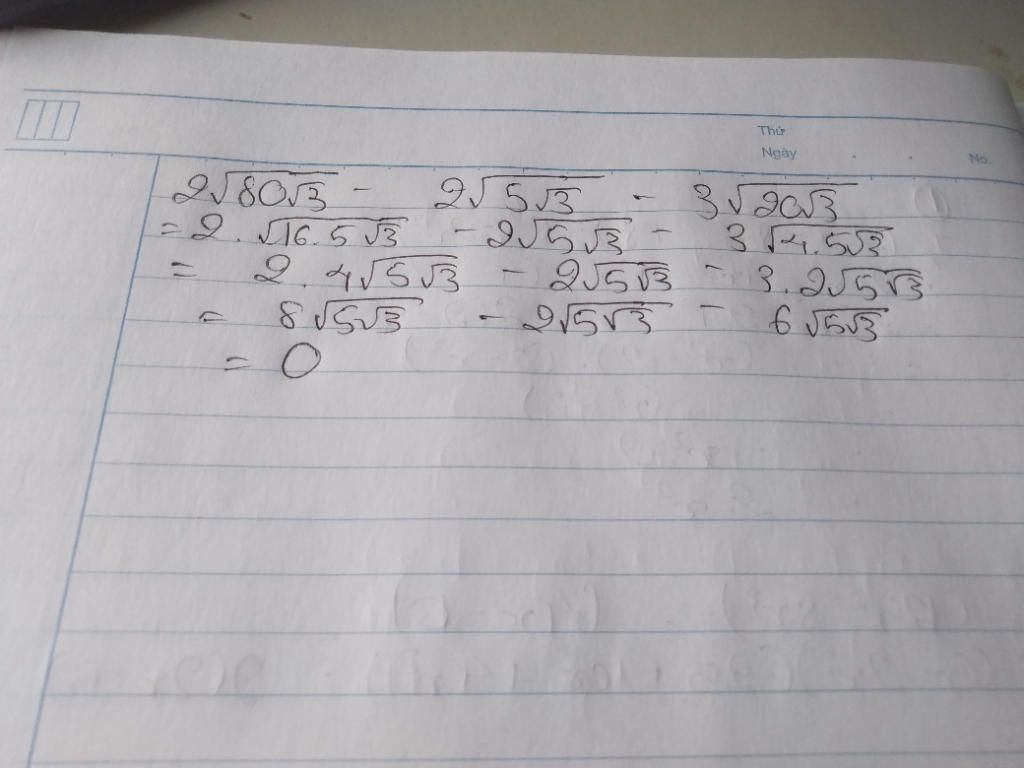 Thứ
Ngày
No.
2√(80√3) - 2√(5√3) - 3√(20√3)
= 2 . √(16. 5√3) - 2√(5√3) - 3√(4. 5√3)
= 2 . 4√(5√3) - 2√(5√3) - 3. 2√(5√3)
= 8√(5√3) - 2√(5√3) - 6√(5√3)
= 0